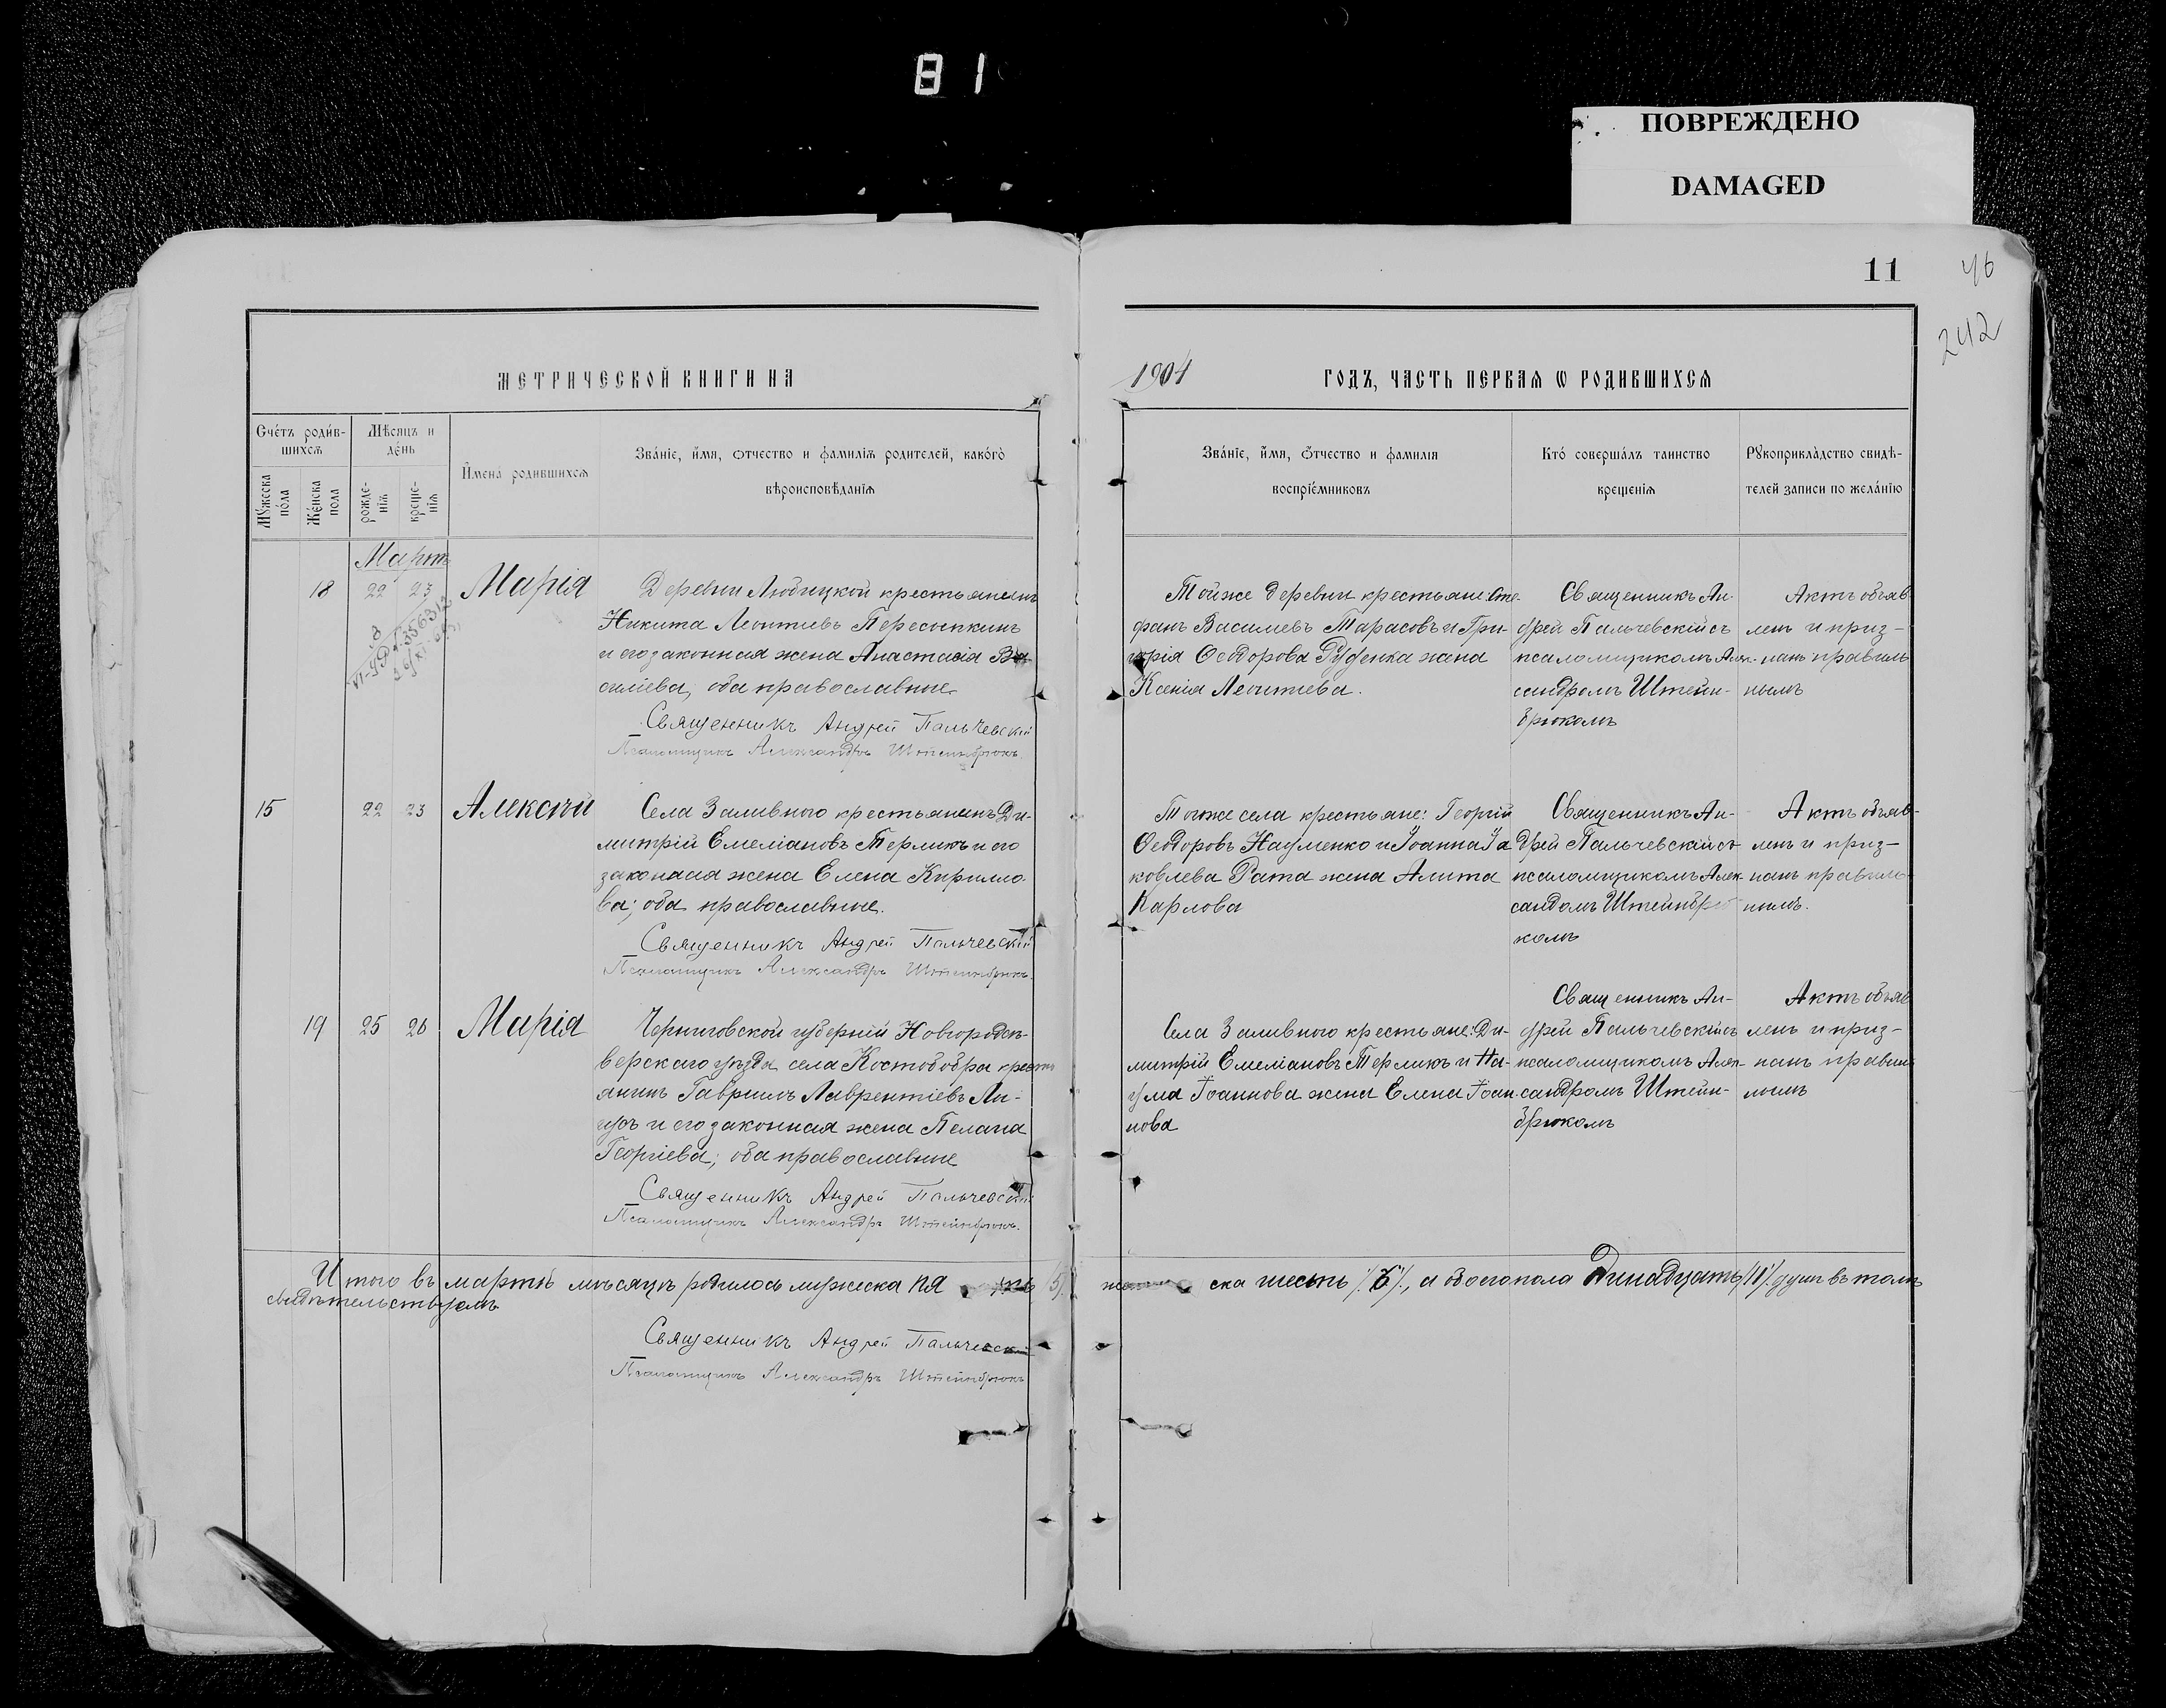 81
ПОВРЕЖДЕНО
DAMAGED
11
46
242
МЕТРИЧЕСКОЙ КНИГИ НА
1904
ГОДЪ, ЧАСТЬ ПЕРВАЯ Ѡ РОДИВШИХСЯ
Счетъ родив-
шихся
Мѣсяцъ и
день
Мужеска
пола
Женска
пола
рожде-
нія
креще-
нія
Имена родившихся
Званіе, имя, отчество и фамилія родителей, какого
вѣроисповѣданія
Званіе, имя, отчество и фамилія
воспріемниковъ
Кто совершалъ таинство
крещенія
Рукоприкладство свидѣ-
телей записи по желанію
Мартъ
18 22 23 Марія
Деревни Любицкой крестьянинъ
Никита Леонтіевъ Пересыпкинъ
и его законная жена Анастасія Ва-
силіева, оба православные
Священникъ Андрей Пальчевскій
Псаломщикъ Александръ Штейнбрюкъ
Тойже деревни крестьяне: Сте-
фанъ Василіевъ Тарасовъ и Гри-
горія Ѳеодорова Руденка жена
Ксенія Леонтіева.
Священникъ Ан-
дрей Пальчевскій съ
псаломщикомъ Алек-
сандромъ Штейн-
брюкомъ
Актъ объяв-
ленъ и приз-
нанъ правиль-
нымъ
15 22 23 Алексѣй
Села Заливного крестьянинъ Ди-
митрій Емеліановъ Терликъ и его
законная жена Елена Кирилло-
ва; оба православные.
Священникъ Андрей Пальчевскій
Псаломщикъ Александръ Штейнбрюкъ
Тогоже села крестьяне: Георгій
Ѳеодоровъ Науменко и Іоанна Іа
ковлева Рата жена Алита
Карлова
Священникъ Ан-
дрей Пальчевскій съ
псаломщикомъ Алек-
сандомъ Штейнбрю
комъ
Актъ объяв-
ленъ и приз-
нанъ правиль-
нымъ.
19 25 26 Марія
Черниговской губерніи Новгородсѣ-
верскаго уѣзда села Костобобра кресть
янинъ Гавриилъ Лаврентіевъ
и его законная жена Пелагія
Георгіева; оба православные
Священникъ Андрей Пальчевскій
Псаломщикъ Александръ Штейнбрюкъ.
Села Заливного крестьяне: Ди-
митрій Емеліановъ Терликъ и На-
ума Іоаннова жена Елена Іоан-
нова
Священникъ Ан-
дрей Пальчевскій съ
псаломщикомъ Алек-
сандромъ Штейн-
брюкомъ
Актъ объяв
ленъ и приз-
нанъ правиль
нымъ
Итого въ мартѣ мѣсяцѣ родилось мужеска пя ть /5/ женска шесть /6/, а обоего пола Одинадцать /11/ душъ въ томъ
свидѣтельствуемъ
Священникъ Андрей Пальчевскій
Псаломщикъ Александръ Штейнбрюкъ